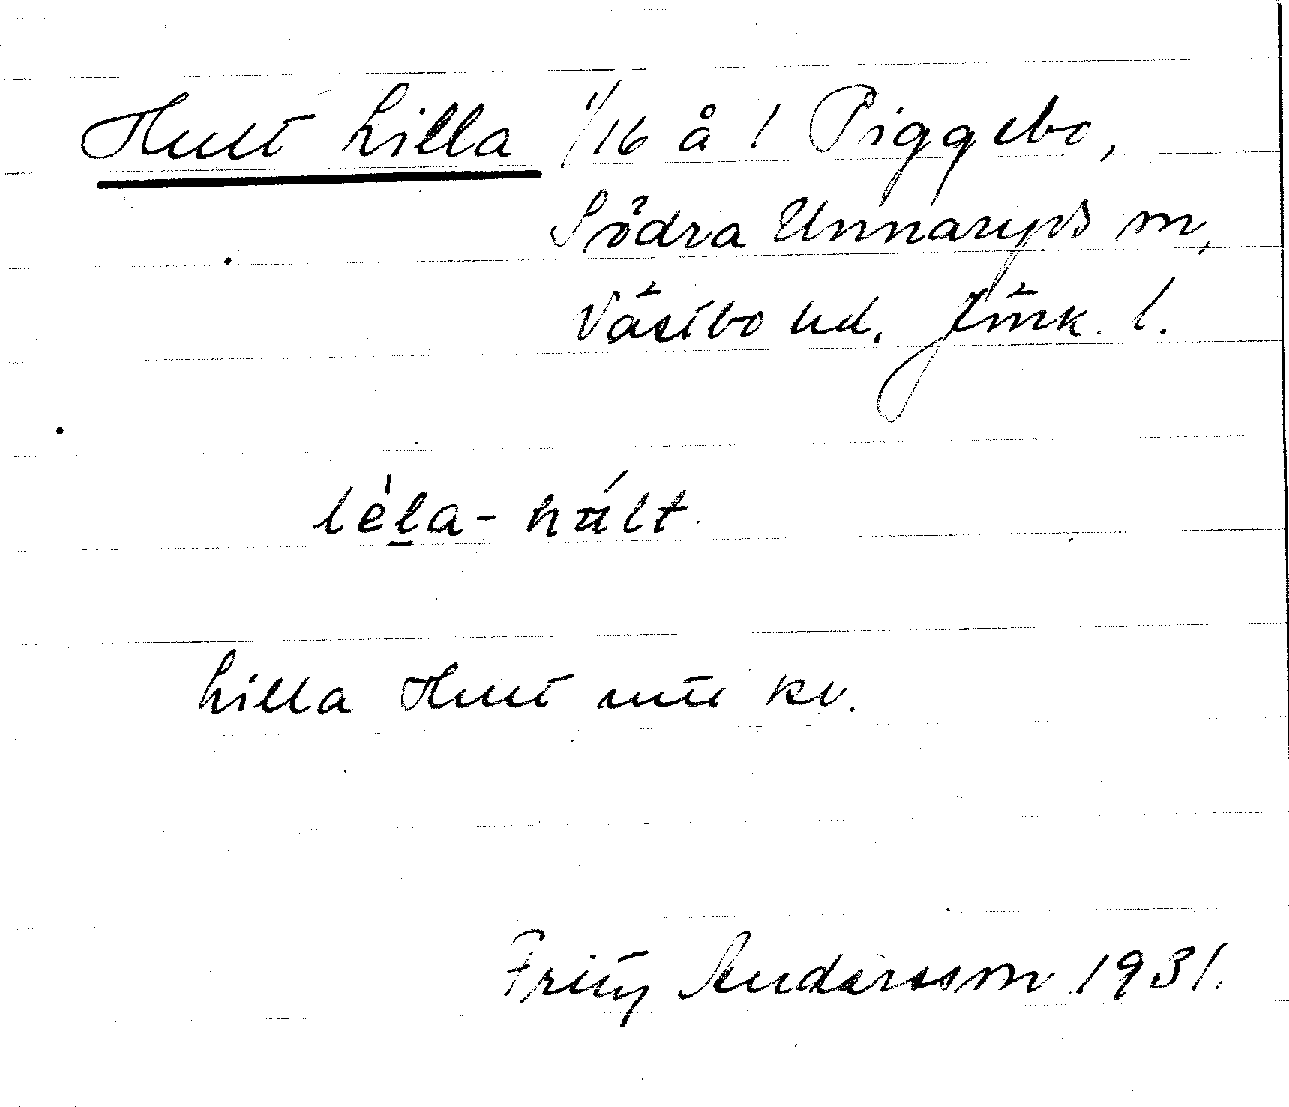 Hult Lilla 1/16 å 1 Piggebo,
Södra Unnaryds sn,
Västbo hd. Jönk. l.
lèla-hált
Lilla Hult nu kv.
Fritz Andersson 1931.